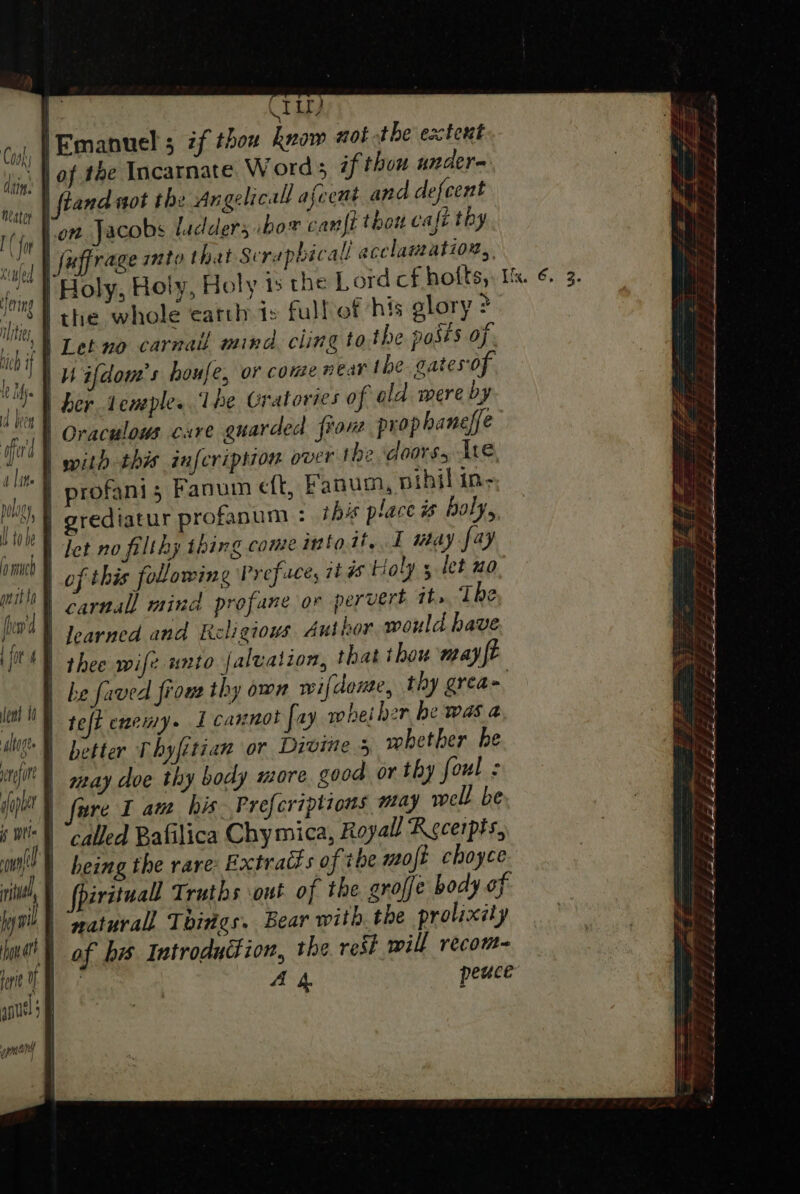 (III)
Emanuel; if thou know not the extent
of the Incarnate Word; if thou under-
ſtand not the Angelicall aſcent and deſcent
on Jacobs ladder; how canſt thou caſt thy
ſuffrage into that Seraphicall acclamation,
Holy, Holy, Holy is the Lord of hoſts, Iſa. 6. 3.
the whole earth is full of his glory?
Let no carnall mind cling to the posts of
Wiſdom's houſe, or come near the gates of
her Temple. The Oratories of old were by
Oraculous care guarded from prophaneſſe
with this inſcription over the doors, Ite
profani; Fanum eſt, Fanum, nihil in-
grediatur profanum: this place is holy,
let no filthy thing come into it. I may ſay
of this following Preface, it is Holy; let no
carnall mind profane or pervert it. The
learned and Religious Author would have
thee wiſe unto ſalvation, that thou mayſt
be ſaved from thy own wiſdome, thy grea-
teſt enemy. I cannot ſay whether he was a
better Phyſitian or Divine; whether he
may doe thy body more good or thy ſoul:
ſure I am his Preſcriptions may well be
called Baſilica Chymica, Royall Receipts,
being the rare Extracts of the moſt choyce
ſpirituall Truths out of the groſſe body of
naturall Things. Bear with the prolixity
of his Introduction, the rest will recom-
A 4 pence